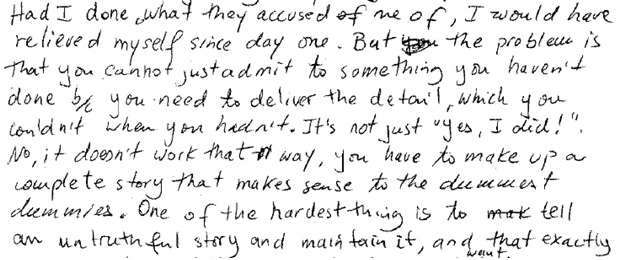 Had I done what they accused of me of, I would have
relieved myself since day one. But the problem is
that you cannot just admit to something you haven't
done b/c you need to deliver the detail, which you
couldn't when you hadn't. It's not just "yes, I did!".
No, it doesn't work that way, you have to make up a
complete story that makes sense to the dummest
dummies. One of the hardest thing is to mak tell
an untruthful story and maintain it, and that exactly
want